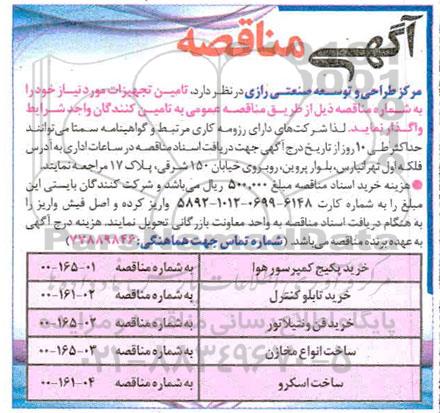 آگهی مناقصه
مرکز طراحی و توسعه صنعتی رازی در نظر دارد، تامین تجهیزات مورد نیاز خود را
به شماره مناقصه ذیل از طریق مناقصه عمومی به تامین کنندگان واجد شرایط
واگذار نماید. لذا شرکت‌های دارای رزومه کاری مرتبط و گواهینامه سمتا می‌توانند
حداکثر طی ۱۰ روز از تاریخ درج آگهی جهت دریافت اسناد مناقصه در ساعات اداری به آدرس
فلکه اول تهرانپارس، بلوار پروین، روبروی خیابان ۱۵۰ شرقی، پلاک ۱۷ مراجعه نمایند.
● هزینه خرید اسناد مناقصه مبلغ ۵۰۰.۰۰۰ ریال می‌باشد و شرکت کنندگان بایستی این
مبلغ را به شماره کارت ۶۱۴۸-۰۶۹۹-۱۰۱۲-۵۸۹۲ واریز کرده و اصل فیش واریز را
به هنگام دریافت اسناد مناقصه به واحد معاونت بازرگانی تحویل نمایند. هزینه درج آگهی
به عهده برنده مناقصه می‌باشد. (شماره تماس جهت هماهنگی: ۷۷۸۸۹۸۴۶)
خرید پکیج کمپرسور هوا به شماره مناقصه ۰۱-۱۶۵-۰۰
خرید تابلو کنترل به شماره مناقصه ۰۲-۱۶۱-۰۰
خرید فن ونتیلاتور به شماره مناقصه ۰۲-۱۶۵-۰۰
ساخت انواع مخازن به شماره مناقصه ۰۳-۱۶۵-۰۰
ساخت اسکرو به شماره مناقصه ۰۴-۱۶۱-۰۰
۰۲۱-۸۸۳۴۹۶۷۰-۵